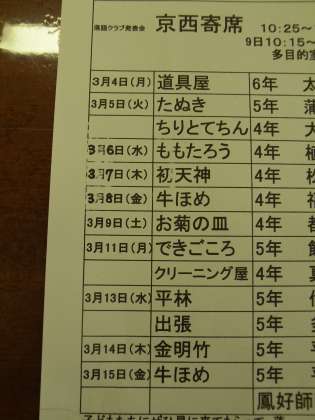 落語クラブ発表会 京西寄席 10:25〜
9日10:15〜
多目的室
3月4日(月) 道具屋 6年
3月5日(火) たぬき 5年 蒲
ちりとてちん 4年 大
3月6日(水) ももたろう 4年 植
3月7日(木) 初天神 4年 松
3月8日(金) 牛ほめ 4年 福
3月9日(土) お菊の皿 4年 都
3月11日(月) できごころ 5年 飯
クリーニング屋 4年 真
3月13日(水) 平林 5年
出張 5年 多
3月14日(木) 金明竹 5年
3月15日(金) 牛ほめ 5年
鳳好師